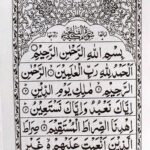 بِسْمِ اللهِ الرَّحْمٰنِ الرَّحِيْمِ
اَلْحَمْدُ لِلّٰهِ رَبِّ الْعٰلَمِيْنَ الرَّحْمٰنِ
الرَّحِيْمِ مٰلِكِ يَوْمِ الدِّيْنِ
اِيَّاكَ نَعْبُدُ وَاِيَّاكَ نَسْتَعِيْنُ
اِهْدِنَا الصِّرَاطَ الْمُسْتَقِيْمَ صِرَاطَ
الَّذِيْنَ اَنْعَمْتَ عَلَيْهِمْ غَيْرِ